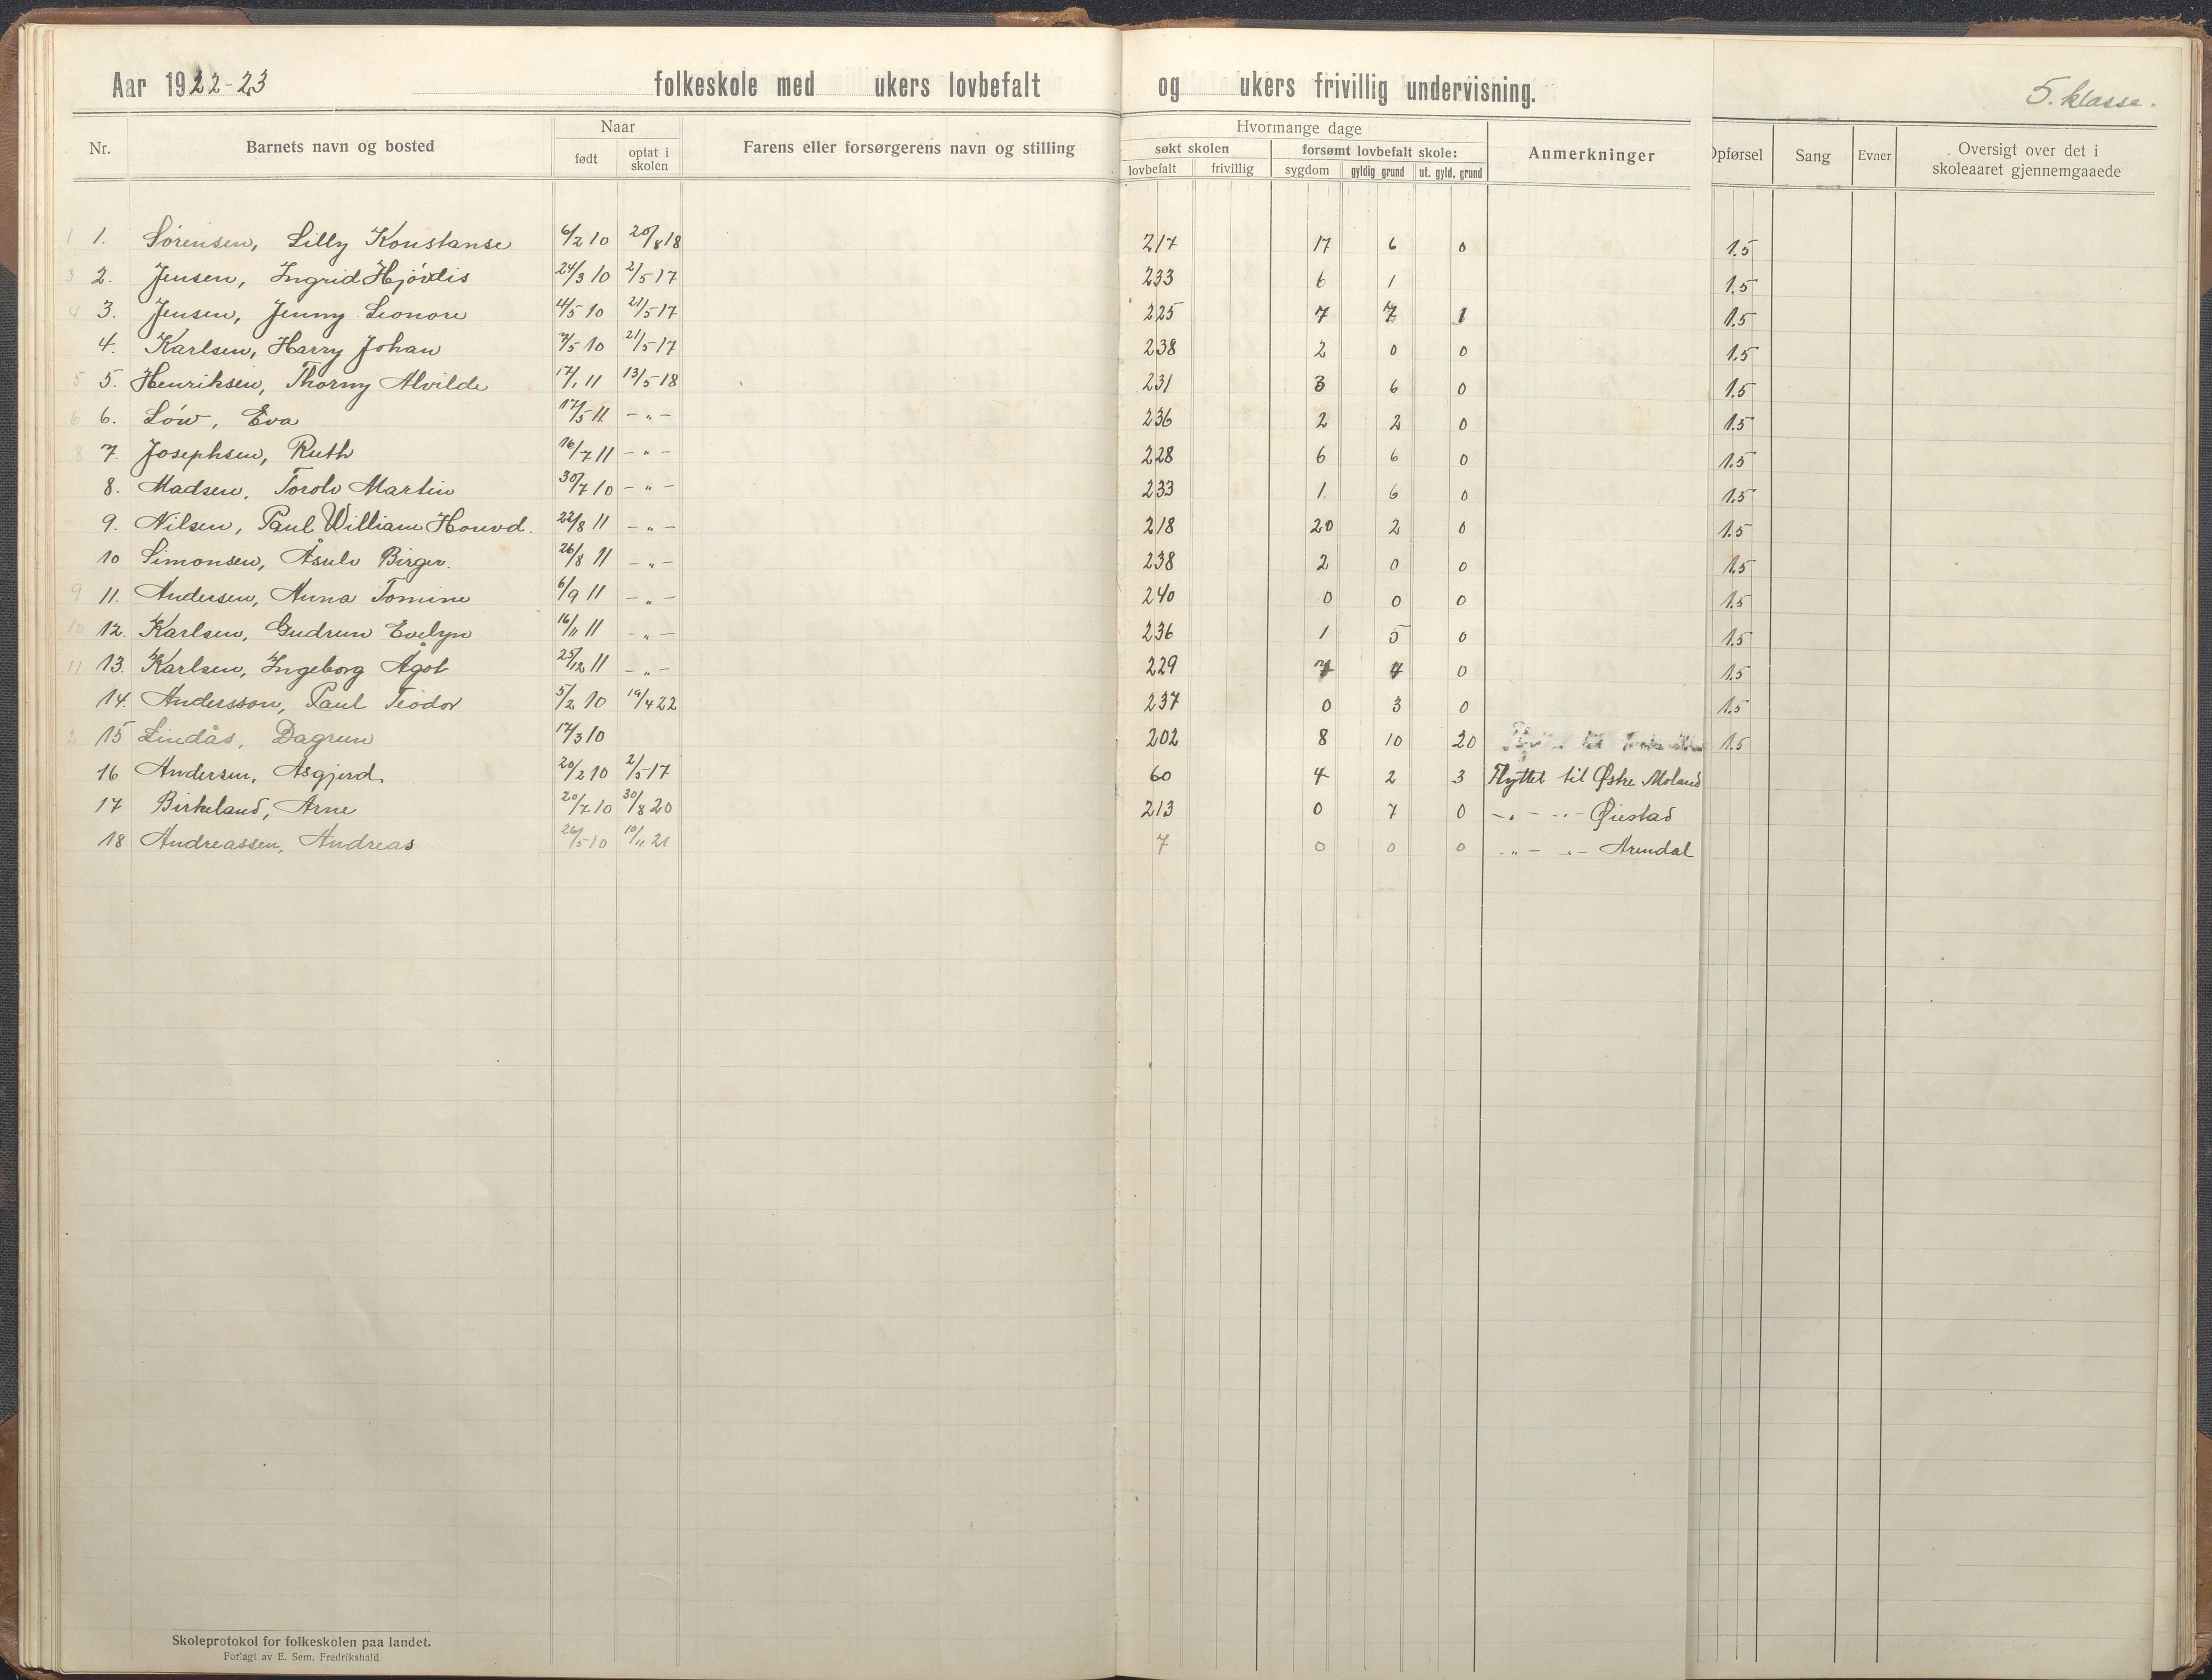 Aar 1922-23 folkeskole med ukers lovbefalt og ukers frivillig undervisning. 5. klasse.
Nr. Barnets navn og bosted Naar født optat i skolen Farens eller forsørgerens navn og stilling Hvormange dage søkt skolen lovbefalt frivillig forsømt lovbefalt skole: sygdom gyldig grund ut. gyld. grund Anmerkninger Opførsel Sang Evner Oversigt over det i skoleaaret gjennemgaaede
1 1. Sørensen, Lilly Konstanse 6/2 10 20/8 18 217 17 6 0 1.5
3 2. Jensen, Ingrid Hjördis 24/3 10 2/5 17 233 6 1 1.5
4 3. Jensen, Jenny Leonore 4/5 10 21/5 17 225 7 7 1 1.5
4. Karlsen, Harry Johan 7/5 10 21/5 17 238 2 0 0 1.5
5 5. Henriksen, Thorny Alvilde 17/1 11 13/5 18 231 3 6 0 1.5
6 6. Löw, Eva 17/5 11 - " - 236 2 2 0 1.5
8 7. Josephsen, Ruth 16/7 11 - " - 228 6 6 0 1.5
8. Madsen, Torolv Martin 30/7 10 - " - 233 1 6 0 1.5
9. Nilsen, Paul William Houvd. 22/8 11 - " - 218 20 2 0 1.5
10 Simonsen, Åsulv Birger. 26/8 11 - " - 238 2 0 0 1.5
9 11. Andersen, Anna Tomine 6/9 11 - " - 240 0 0 0 1.5
10 12. Karlsen, Gudrun Evelyn 16/11 11 - " - 236 1 5 0 1.5
11 13. Karlsen, Ingeborg Ågot 25/12 11 - " - 229 7 4 0 1.5
14. Andersson, Paul Teodor 5/2 10 19/4 22 237 0 3 0 1.5
2 15 Lindås, Dagrun 17/3 10 202 8 10 20 1.5
16 Andersen, Asgjerd. 20/2 10 2/5 17 60 4 2 3 Flyttet til Østre Moland
17 Birkeland, Arne 20/7 10 30/8 20 213 0 7 0 - " - - " - Øiestad
18 Andreassen, Andreas 26/5 10 10/11 21 7 0 0 0 - " - - " - Arendal
Skoleprotokol for folkeskolen paa landet.
Forlagt av E. Sem, Fredrikshald